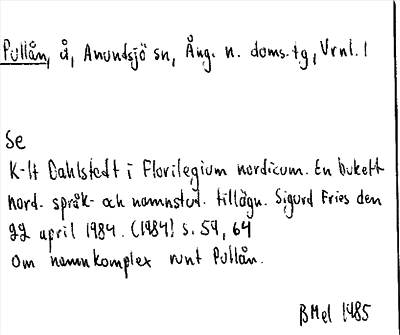 Pullån, å, Anundsjö sn, Ång. n. doms.tg, Vrnl. 1
Se
K-H Dahlstedt i Florilegium nordicum. En bukett
nord. språk- och namnstud. tillägn. Sigurd Fries den
22 april 1984. (1984) s. 59, 64
Om namnkomplex runt Pullån.
BMel 1985